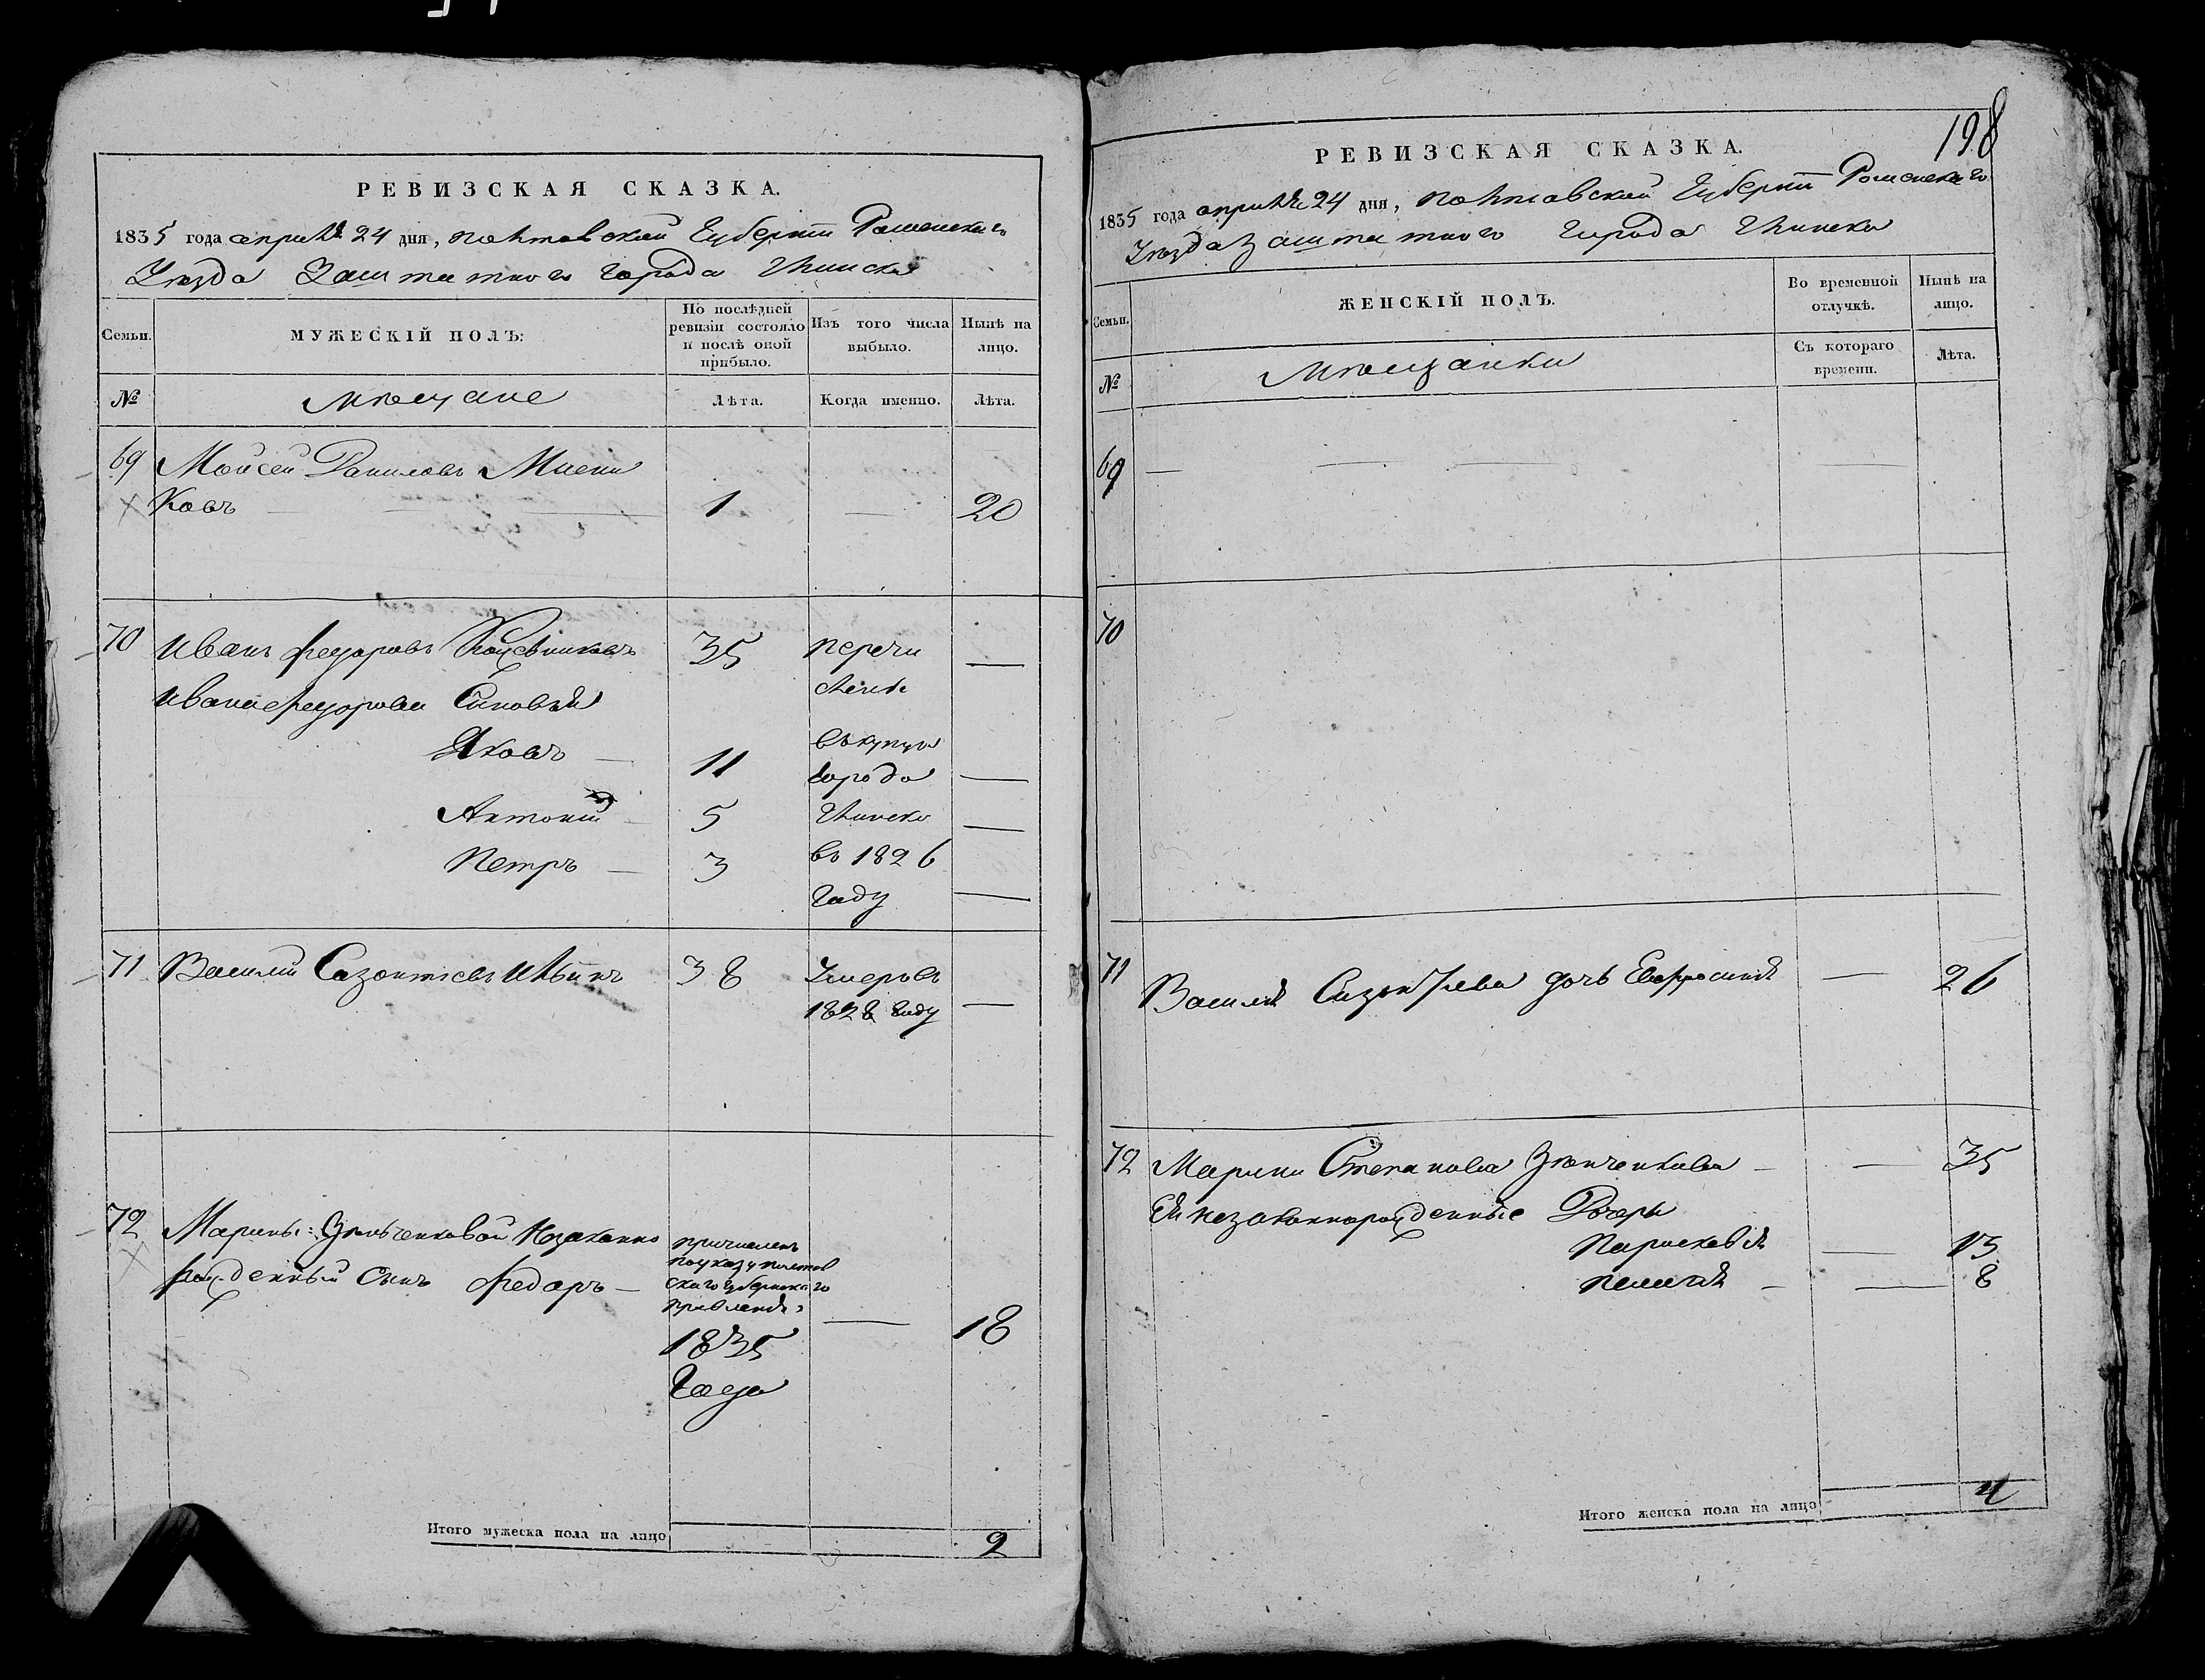 РЕВИЗСКАЯ СКАЗКА.
1835 года апреля 24 дня, Полтавской Губернии Роменскаго
Уезда Заштатного города Глинска
Семьи.
МУЖЕСКІЙ ПОЛЪ:
По послѣдней ревизіи состояло и послѣ оной прибыло.
Изъ того числа выбыло.
Нынѣ на лицо.
№
мещане
Лѣта.
Когда именно.
Лѣта.
69 Мойсей Данилов
ковъ 1 20
70 Иванъ Федоровъ 35 перечи
слены
Ивана Федорова Сыновья
Яковъ 11 въ купцы
города
Антоний 5 Глинска
Петръ 3 въ 1826
году
71 Василий Сазонтиевъ Ильинъ 38 Умеръ въ
1828 году
72 Марины Зенченковой Незаконно
рожденный Сынъ Федоръ 18
причисленъ
по указу полтав
скаго губернскаго
правления
1835
года
Итого мужеска пола на лицо 2
198
РЕВИЗСКАЯ СКАЗКА.
1835 года апреля 24 дня, Полтавской Губернии Роменскаго
Уезда Заштатного города Глинска
Семьи.
ЖЕНСКІЙ ПОЛЪ.
Во временной отлучкѣ.
Нынѣ на лицо.
№
мещанки
Съ котораго времени.
Лѣта.
69
70
71 Василия Сазонтиева дочь Евфросиния 26
72 Марина Степанова Зенченкова 35
Ея незаконнорожденные Дочери
Парасковия 13
Пелагия 8
Итого женска пола на лицо 4